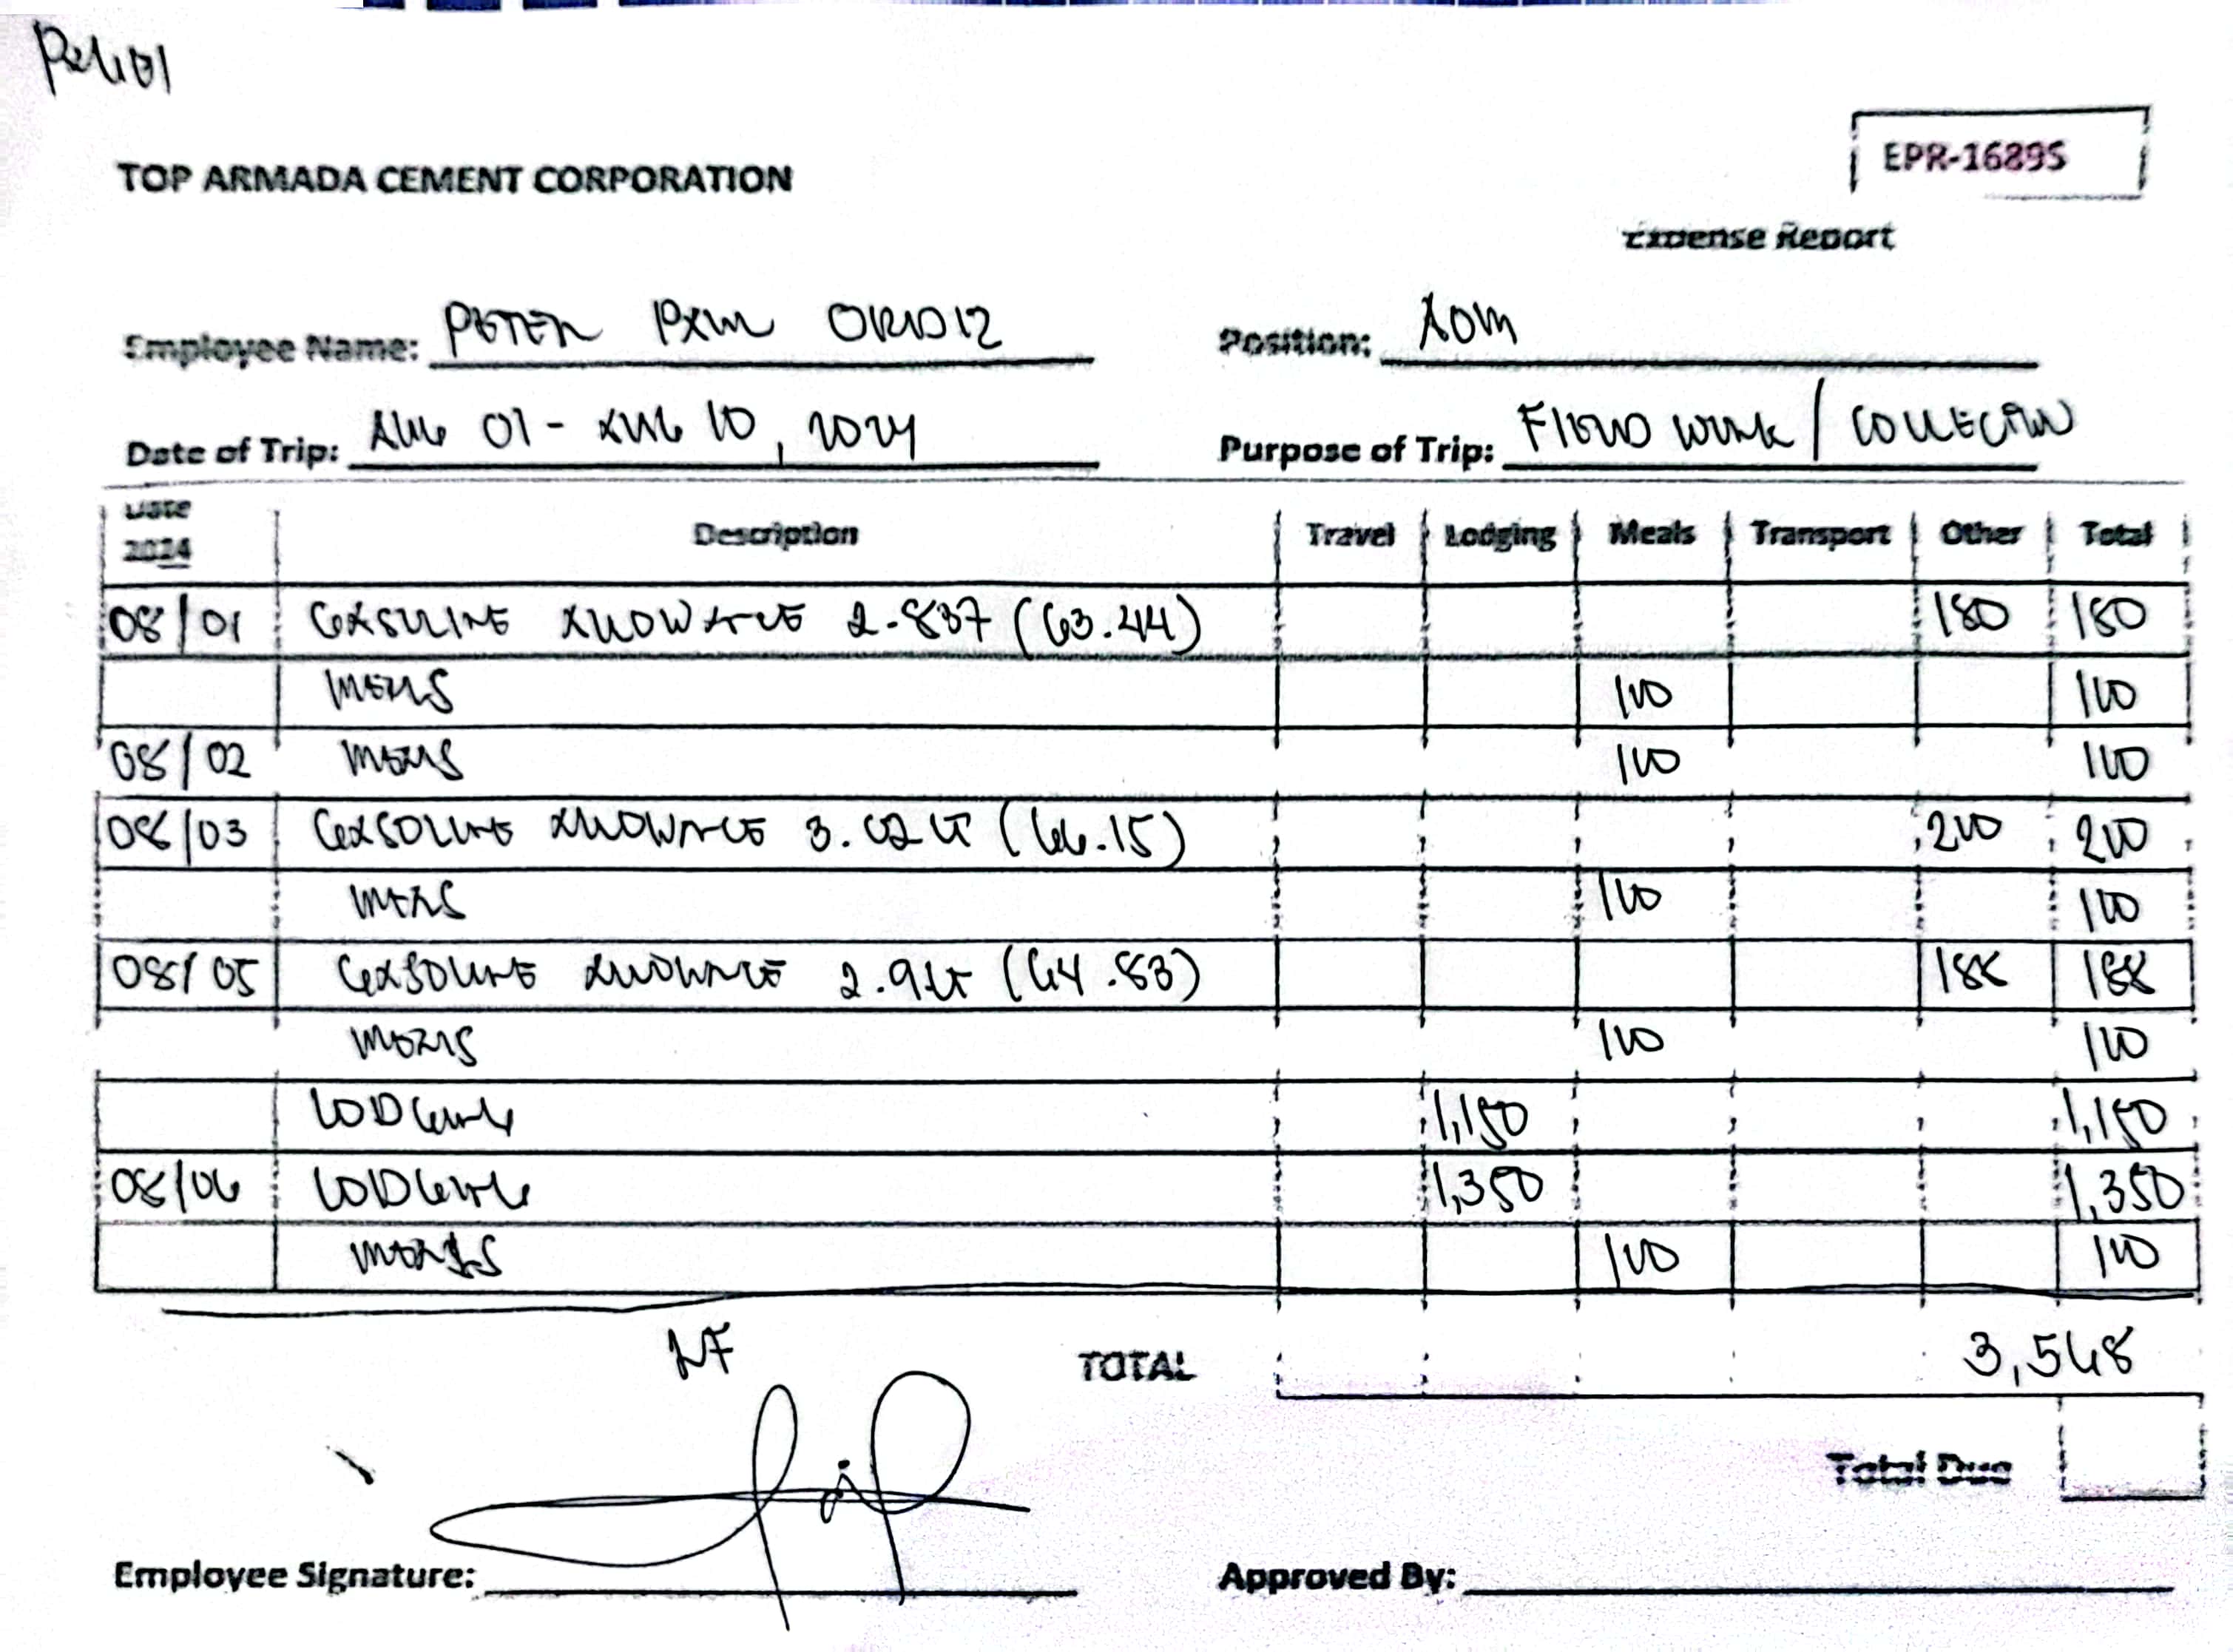 TOP ARMADA CEMENT CORPORATION
EPR-16895
Expense Report
Employee Name: PETER PAUL ORDIZ Position: AOM
Date of Trip: AUG 01 - AUG 10, 2024 Purpose of Trip: FIELD WORK / COLLECTION
Date 2024 Description Travel Lodging Meals Transport Other Total
08/01 GASOLINE ALLOWANCE 2.837 (63.44) 180 180
MEALS 100 100
08/02 MEALS 100 100
08/03 GASOLINE ALLOWANCE 3.02 LT (66.15) 200 200
MEALS 100 100
08/05 GASOLINE ALLOWANCE 2.9 LT (64.83) 188 188
MEALS 100 100
LODGING 1,150 1,150
08/06 LODGING 1,350 1,350
MEALS 100 100
NF
TOTAL 3,568
Total Due
Employee Signature: Approved By: